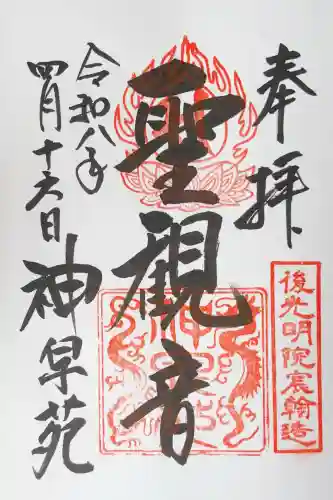 奉拝
後光明院宸翰造
聖觀音
令和八年
四月十六日
神早苑